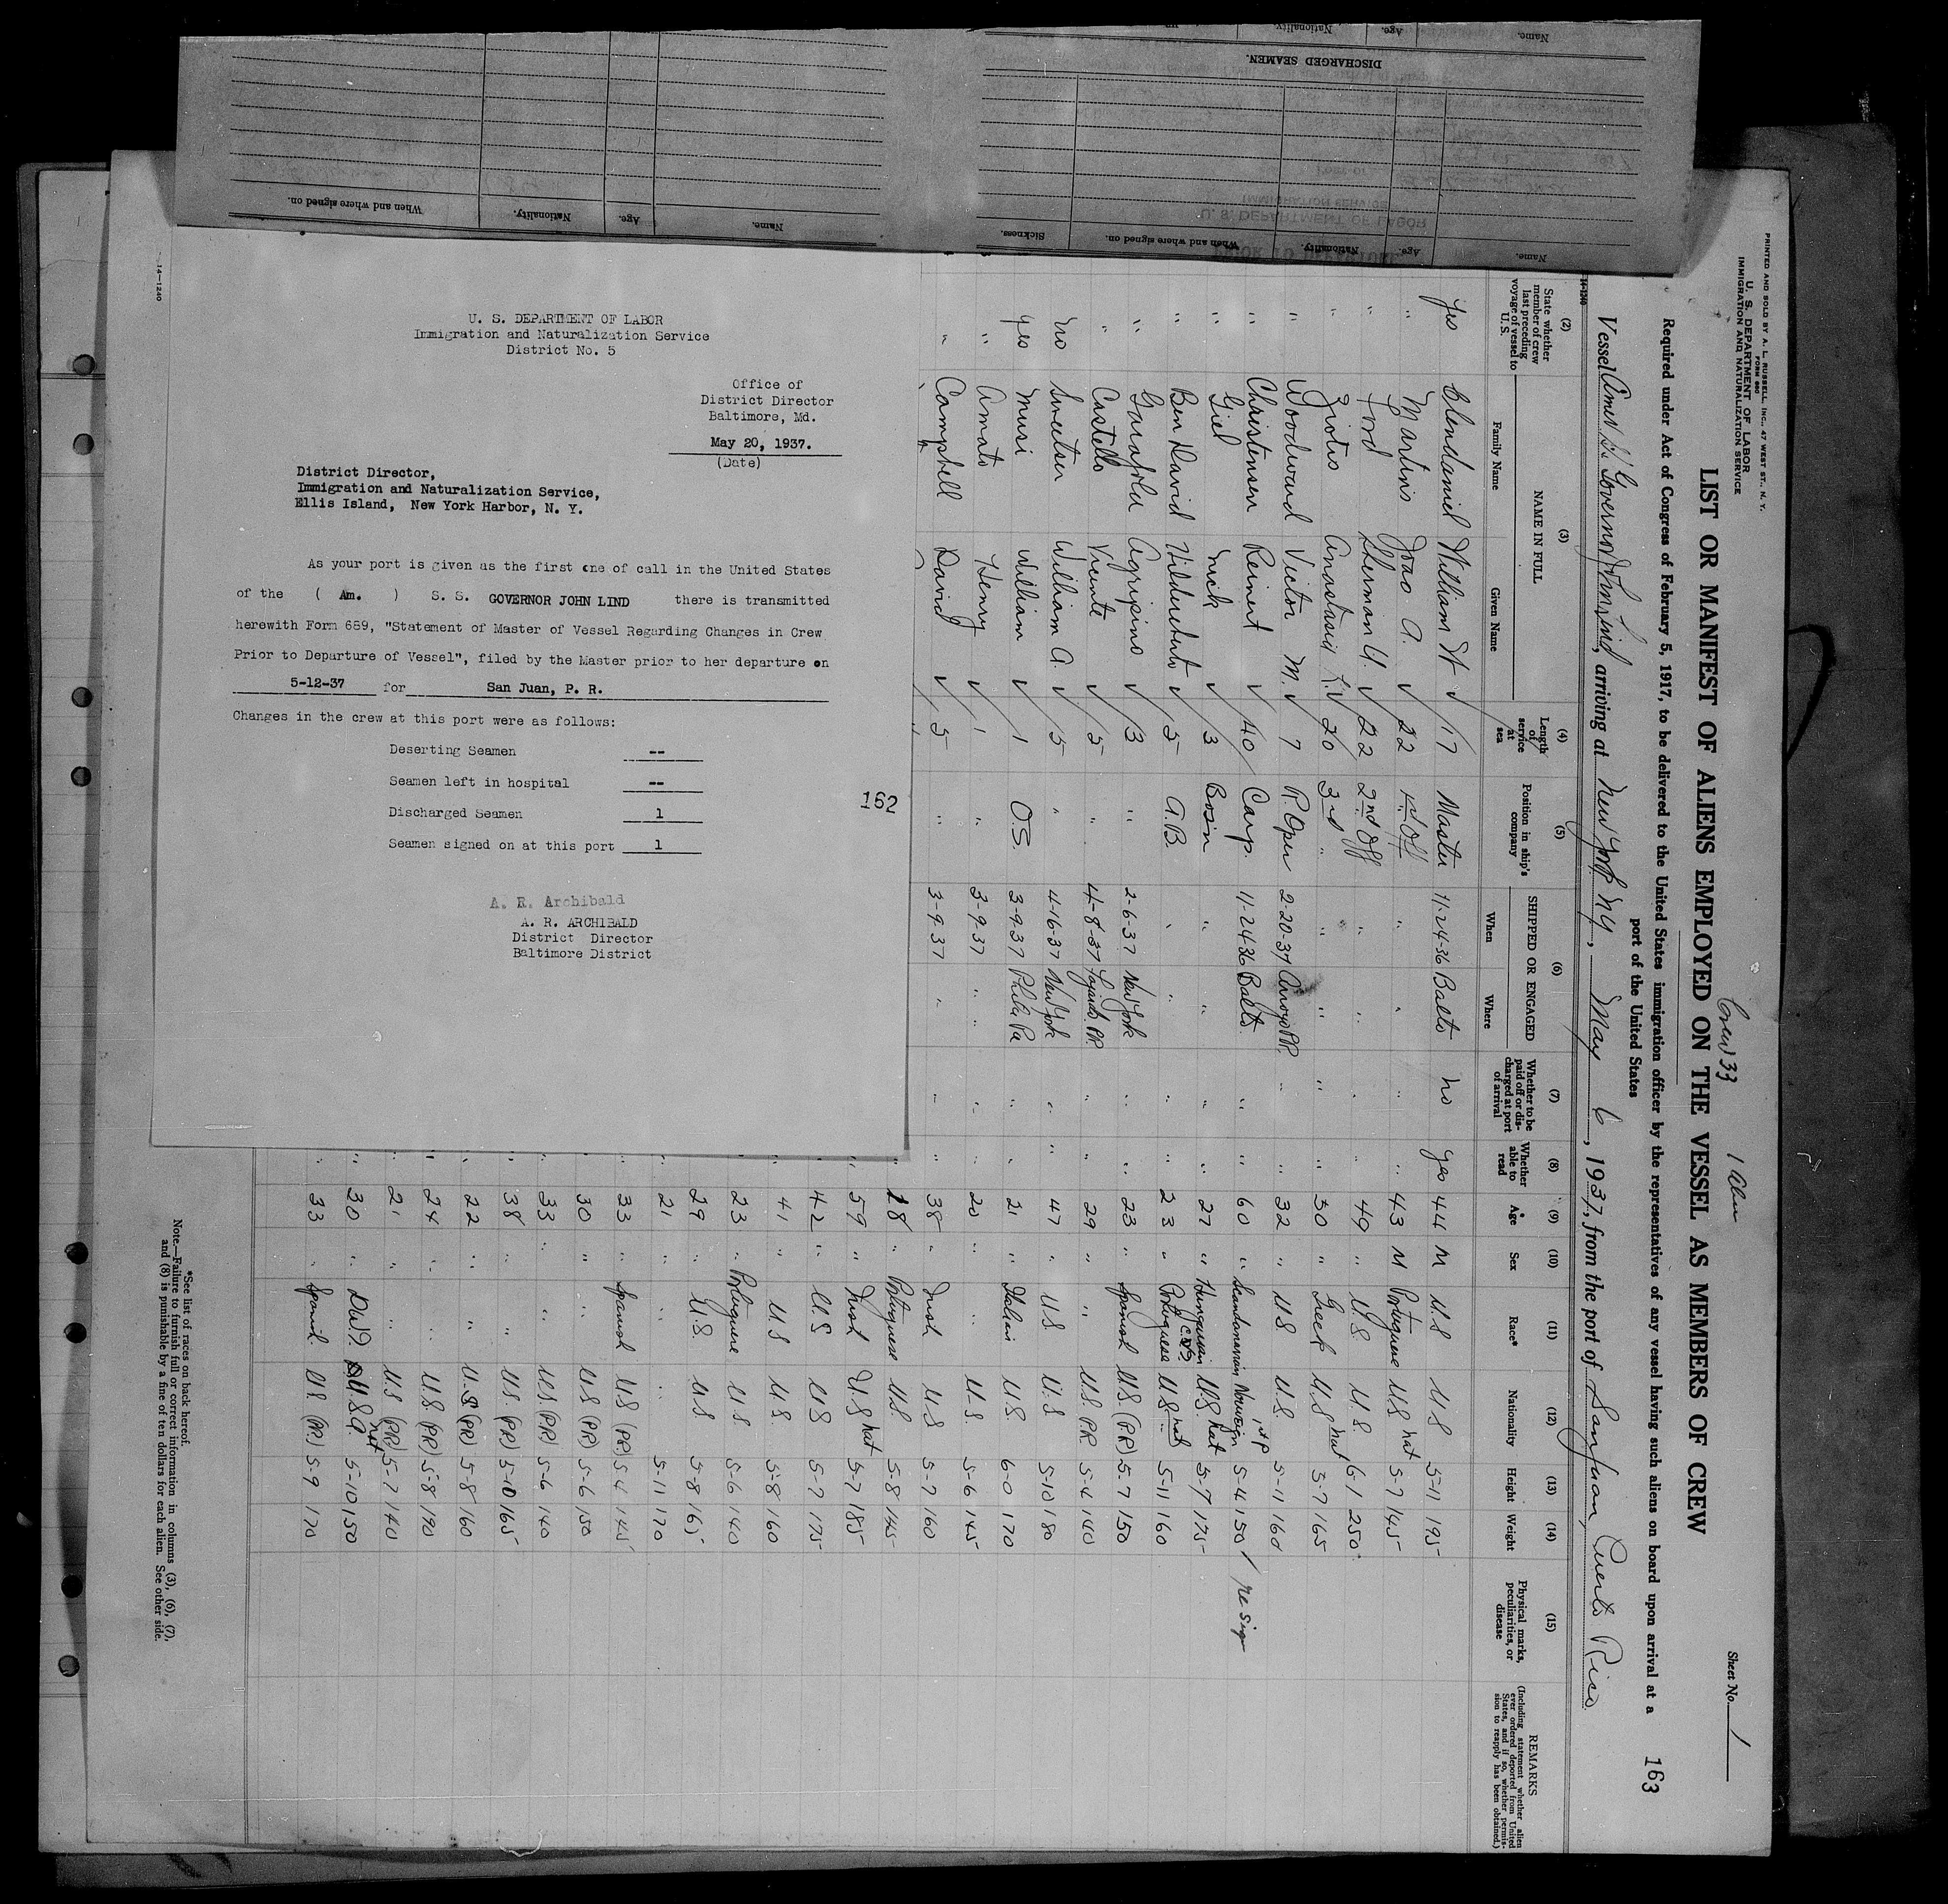 Name.
Age.
Nationality.
DISCHARGED SEAMEN.
Name.
Age.
Nationality.
When and where signed on.
Sickness.
Name.
Age.
Nationality.
When and where signed on.
U. S. DEPARTMENT OF LABOR
IMMIGRATION SERVICE
14-1240
U. S. DEPARTMENT OF LABOR
Immigration and Naturalization Service
District No. 5
Office of
District Director
Baltimore, Md.
May 20, 1937.
(Date)
District Director,
Immigration and Naturalization Service,
Ellis Island, New York Harbor, N. Y.
As your port is given as the first one of call in the United States
of the ( Am. ) S. S. GOVERNOR JOHN LIND there is transmitted
herewith Form 689, "Statement of Master of Vessel Regarding Changes in Crew
Prior to Departure of Vessel", filed by the Master prior to her departure on
5-12-37 for San Juan, P. R.
Changes in the crew at this port were as follows:
Deserting Seamen --
Seamen left in hospital --
Discharged Seamen 1
Seamen signed on at this port 1
162
A. R. Archibald
A. R. ARCHIBALD
District Director
Baltimore District
PRINTED AND SOLD BY A. L. RUSSELL, INC., 47 WEST ST., N. Y.
FORM 680
U. S. DEPARTMENT OF LABOR
IMMIGRATION AND NATURALIZATION SERVICE
Crew 33 1 Alien
Sheet No. 1
LIST OR MANIFEST OF ALIENS EMPLOYED ON THE VESSEL AS MEMBERS OF CREW
Required under Act of Congress of February 5, 1917, to be delivered to the United States immigration officer by the representatives of any vessel having such aliens on board upon arrival at a
port of the United States
163
Vessel Amer SS Governor John Lind, arriving at New York NY, May 6, 1937, from the port of San Juan Puerto Rico
14-1240
(2) (3) (4) (5) (6) (7) (8) (9) (10) (11) (12) (13) (14) (15)
State whether member of crew last preceding voyage of vessel to U. S.
NAME IN FULL
Family Name Given Name
Length of service at sea
Position in ship's company
SHIPPED OR ENGAGED
When Where
Whether to be paid off or discharged at port of arrival
Whether able to read
Age
Sex
Race*
Nationality
Height
Weight
Physical marks, peculiarities, or disease
REMARKS
(Including statement whether alien ever ordered deported from United States, and if so, whether permission to reapply has been obtained.)
Yes Clendaniel William H ✓ 17 Master 11-24-36 Balto no yes 44 M U S 5-11 195
" Martins Joao A. ✓ 22 1st Off " " " " 43 M Portuguese U S nat 5-7 145
" Ford Sherman H. ✓ 22 2nd Off " " " " 49 " U.S. U.S. 6-1 250
" Ziotis Anastasis ✓ 20 3rd " " " " " 30 " Greek U S nat 5-7 165
" Woodward Victor M. ✓ 7 R. Oper 2-20-37 Arroyo P.R. " " 32 " U S U.S. 5-11 160
" Christensen Reinert ✓ 40 Carp. 11-24-36 Balto. " " 60 " Scandanavian Norweign 1st p 5-4 150 resign
" Giel Nick ✓ 3 Bosin " " " " 27 " Hungarian U.S. nat 5-7 175
" Ben David Hildebrato ✓ 5 A.B. " " " " 23 " Portuguese U.S. nat 5-11 160
" Agripino ✓ 3 " 2-6-37 New York " " 23 " Spanish U.S. (PR) 5-7 150
" Castello Vicente ✓ 5 " 4-8-37 Fajardo. PR " " 29 " " U.S. PR 5-4 140
no Sweetser William A. ✓ 5 " 4-16-37 New York " " 47 " U.S U.S 5-10 180
yes Musi William ✓ 1 O.S. 3-9-37 Phila Pa " " 21 " Italian U.S. 6-0 170
" Amato Henry ✓ 1 " 3-9-37 " " " 20 " " U.S 5-6 145
" Campbell David ✓ 5 " 3-9-37 " " " 38 " Irish U.S 5-7 160
18 " Portuguese U.S 5-8 145
59 " Irish U.S nat 5-7 185
42 " U.S U S 5-7 175
41 " U.S U.S. 5-8 160
23 " Portuguese U S 5-6 140
29 " U.S. U S 5-8 165
21 " " " 5-11 170
33 " Spanish U S (PR) 5-4 145
30 " " U S (PR) 5-6 150
33 " " U.S. (PR) 5-6 140
38 " " U.S. (PR) 5-10 165
22 " " U.S (PR) 5-8 160
24 " " U.S. (PR) 5-8 190
21 " " U.S (PR) 5-7 140
30 " U S A nat 5-10 150
33 " Spanish U.S. (PR) 5-9 170
*See list of races on back hereof.
Note.—Failure to furnish full or correct information in columns (3), (6), (7),
and (8) is punishable by a fine of ten dollars for each alien. See other side.